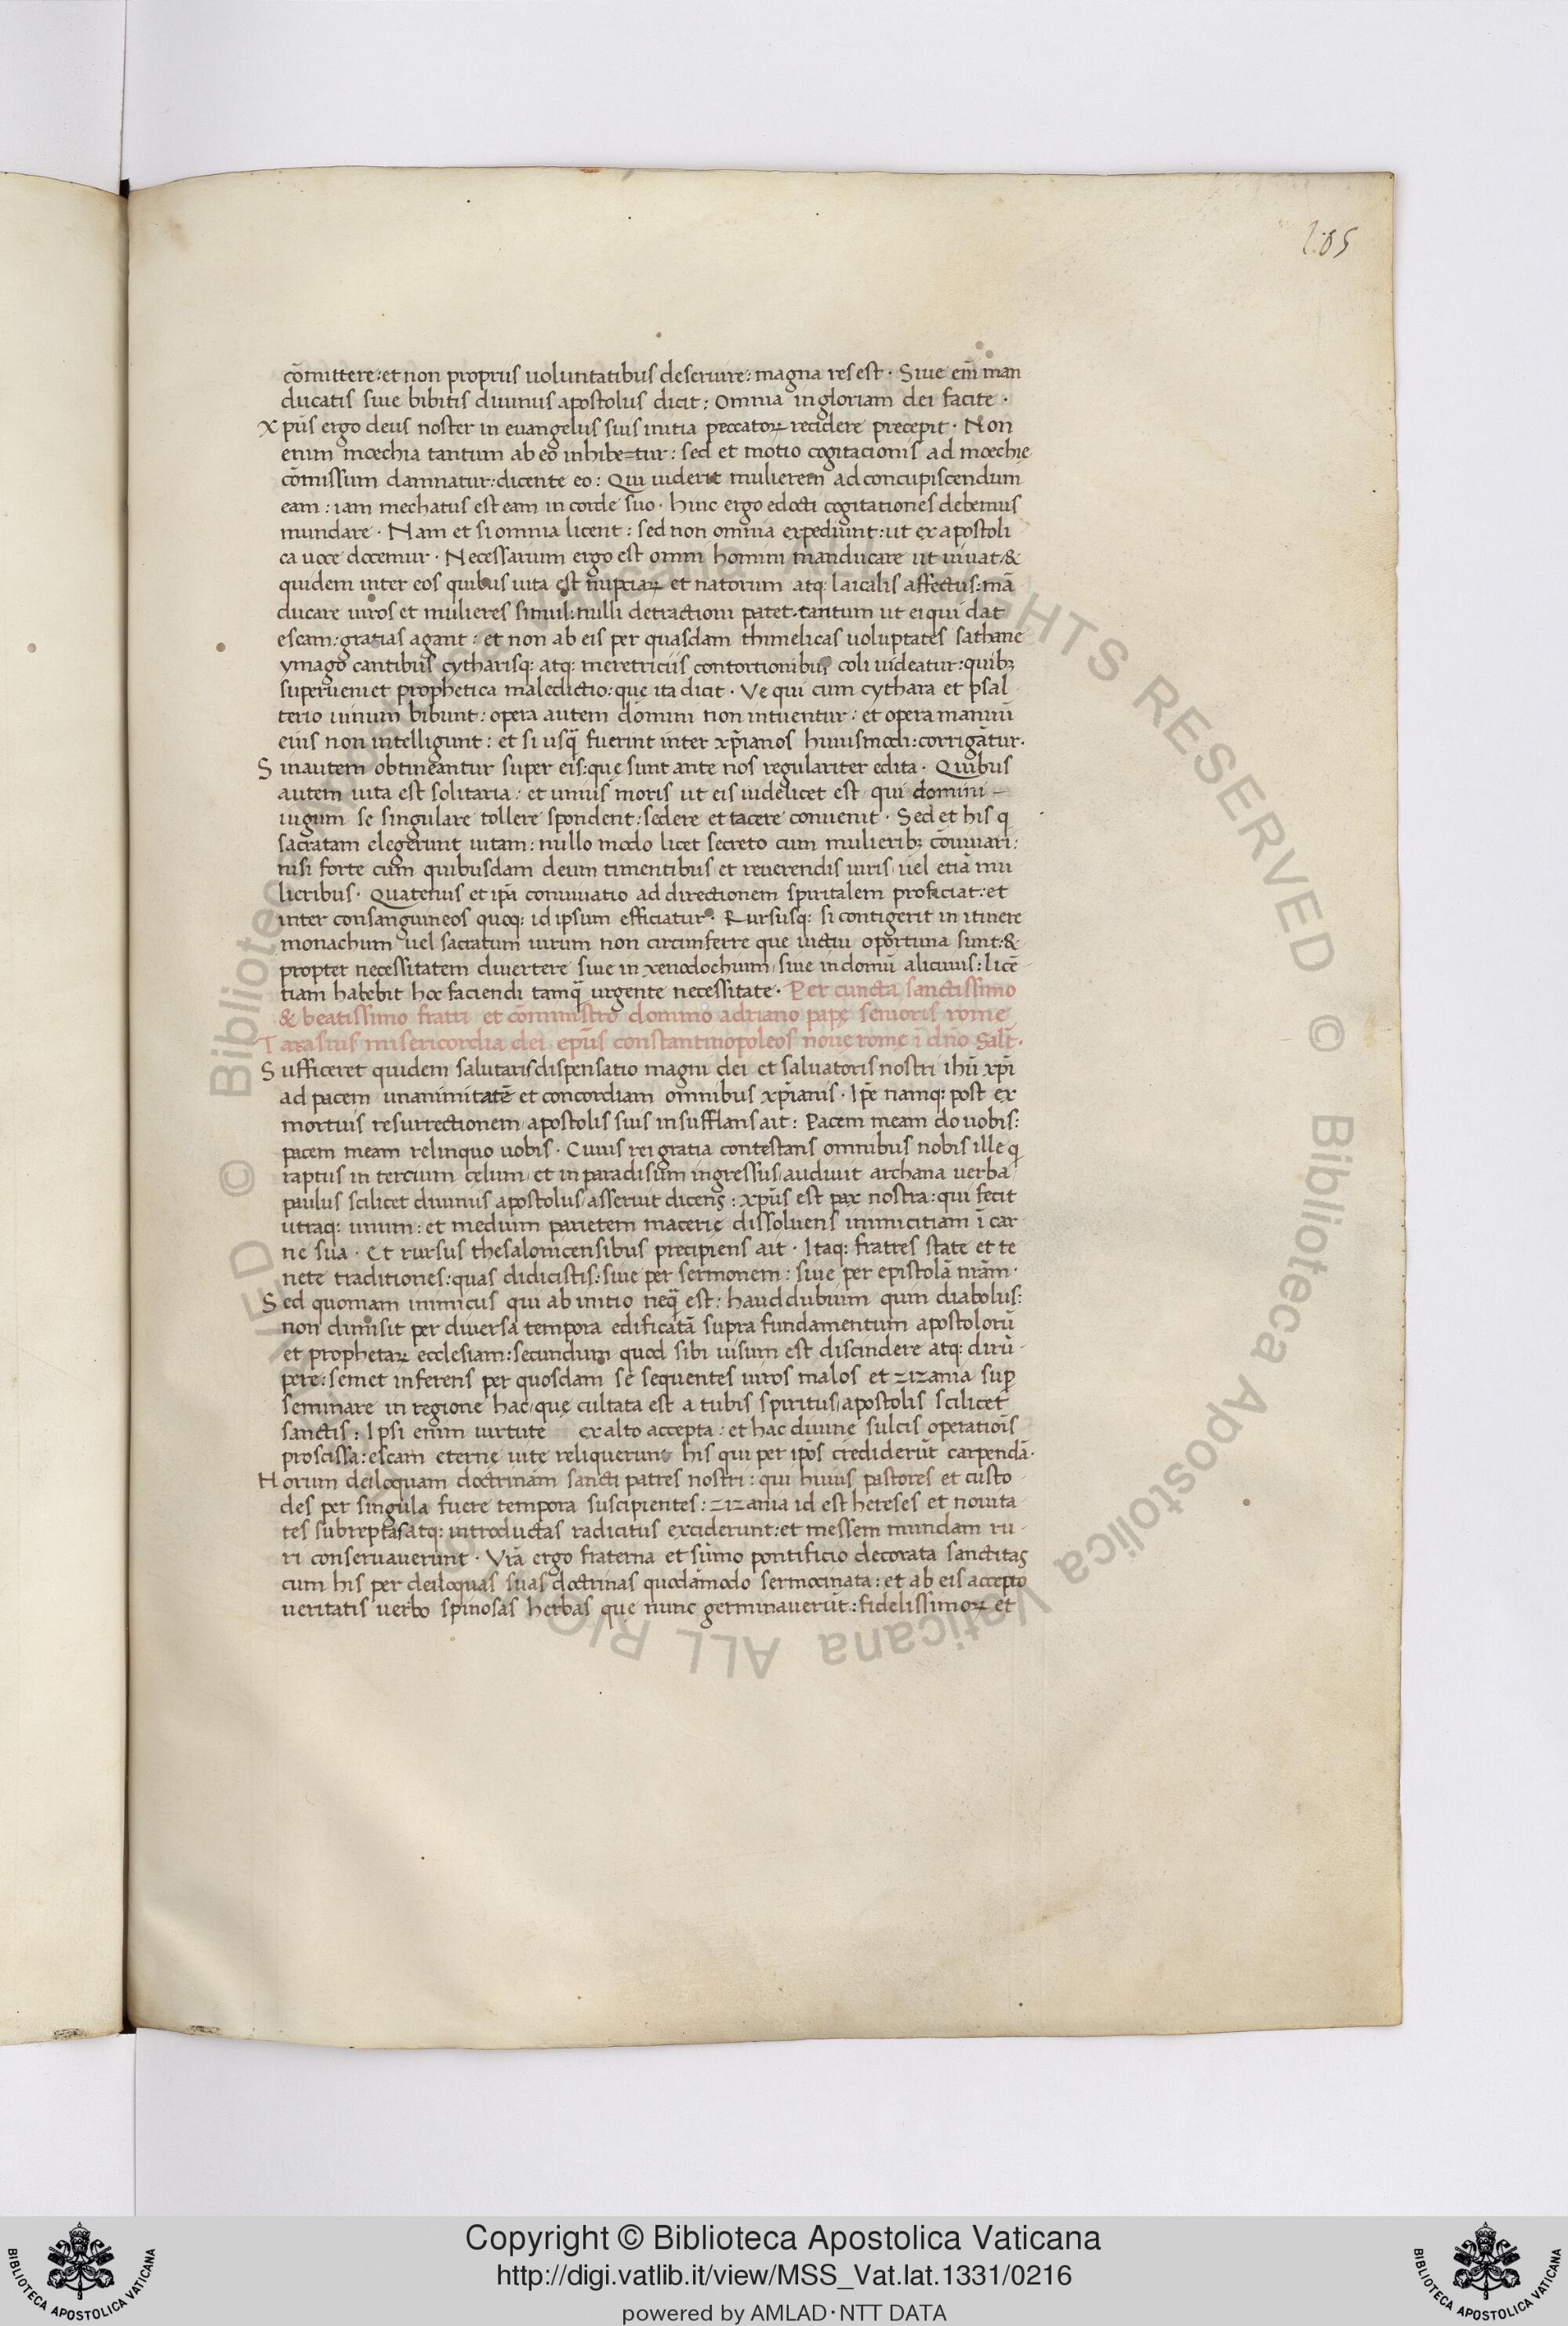 205
cōmittere: et non propriis uoluntatibus deseruire: magna res est · Siue em̄ man
ducatis siue bibitis diuinus apostolus dicit: Omnia in gloriam dei facite ·
Xp̄us ergo deus noster in euangeliis suis initia peccatoꝝ recidere precepit · Non
enim mœchia tantum ab eo inhibe=tur: sed et motio cogitacionis ad mœchię
cōmissum damnatur: dicente eo: Qui uiderit mulierem ad concupiscendum
eam: iam mechatus est eam in corde suo · hinc ergo edocti cogitationes debemus
mundare · Nam et si omnia licent: sed non omnia expediunt: ut ex apostoli
ca uoce docemur · Necessarium ergo est omni homini manducare ut uiuat: &
quidem inter eos quibus uita est nuptiaꝝ et natorum atq: laicalis affectus: mā
ducare uiros et mulieres simul: nulli detractioni patet · tantum ut ei qui dat
escam: gratias agant: et non ab eis per quasdam thimelicas uoluptates sathane
ymago cantibus cytharisq: atq: meretriciis contortionibus coli uideatur: quibꝫ
superueniet prophetica maledictio: que ita dicit · Ve qui cum cythara et psal
terio uinum bibunt: opera autem domini non intuentur: et opera manuū
eius non intelligunt: et si usq̄ fuerint inter xp̄ianos huiusmodi: corrigātur ·
Sin autem obtineantur super eis: quę sunt ante nos regulariter edita · Quibus
autem uita est solitaria: et unius moris ut eis uidelicet est qui domini –
iugum se singulare tollere spondent: sedere et tacere conuenit · Sed et his q
sacratam elegerunt uitam: nullo modo licet secreto cum mulieribꝫ cōuiuari:
nisi forte cum quibusdam deum timentibus et reuerendis uiris uel etiā mu
lieribus · Quatenus et ip̄a conuiuatio ad directionem spiritalem proficiat: et
inter consanguineos quoq: id ipsum efficiatur · Rursusq: si contigerit in itinere
monachum uel sacratum uirum non circunferre que uictui oportuna sunt: &
propter necessitatem diuertere siue in xenodochium siue in domū alicuius: licē
tiam habebit hoc faciendi tamq̄ urgente necessitate · Per cuncta sanctissimo
& beatissimo fratri et cōministro domino adriano papę senioris rome
Tarasius misericordia dei ep̄us constantinopoleos nouę romę ī dn̄o Salt̄ ·
Sufficeret quidem salutaris dispensatio magni dei et saluatoris nostri ihū xp̄i
ad pacem unanimitatē et concordiam omnibus xp̄ianis · Ip̄e namq: post ex
mortuis resurrectionem apostolis suis insufflans ait: Pacem meam do uobis:
pacem meam relinquo uobis · Cuius rei gratia contestans omnibus nobis ille q
raptus in tercium cęlum et in paradisum ingressus audiuit archana uerba
paulus scilicet diuinus apostolus asseruit dicens: xp̄us est pax nostra: qui fecit
utraq: unum: et medium parietem macerię dissoluens inimicitiam ī car
ne sua · Et rursus thesalonicensibus precipiens ait · Itaq: fratres state et te
nete traditiones: quas didicistis: siue per sermonem: siue per epistolā nr̄am ·
Sed quoniam inimicus qui ab initio neq̄ est: haud dubium quin diabolus:
non dimisit per diuersa tempora edificatā supra fundamentum apostolorū
et prophetaꝝ ecclesiam: secundum quod sibi uisum est discindere atq: dirū
pere: semet inferens per quosdam se sequentes uiros malos et zizania sup̄
seminare in regione hac quę cultata est a tubis spiritus apostolis scilicet
sanctis: Ipsi enim uirtute ex alto accepta: et hac diuine sulcis operatiōis
proscissa: escam eternę uite reliquerunt his qui per ip̄os crediderūt carpendā ·
Horum deiloquam doctrinam sancti patres nostri: qui huius pastores et custo
des per singula fuere tempora suscipientes: zizania id est hereses et nouita
tes subreptas atq: introductas radicitus exciderunt: et messem mundam ru
ri conseruauerunt · Vr̄a ergo fraterna et sūmo pontificio decorata sanctitas
cum his per deiloquas suas doctrinas quodāmodo sermocinata: et ab eis accepto
ueritatis uerbo spinosas herbas que nunc germinauerūt: fidelissimoꝝ et
Copyright © Biblioteca Apostolica Vaticana
http://digi.vatlib.it/view/MSS_Vat.lat.1331/0216
powered by AMLAD·NTT DATA
BIBLIOTECA APOSTOLICA VATICANA
BIBLIOTECA APOSTOLICA VATICANA
© Biblioteca Apostolica Vaticana ALL RIGHTS RESERVED © Biblioteca Apostolica Vaticana ALL RIGHTS RESERVED